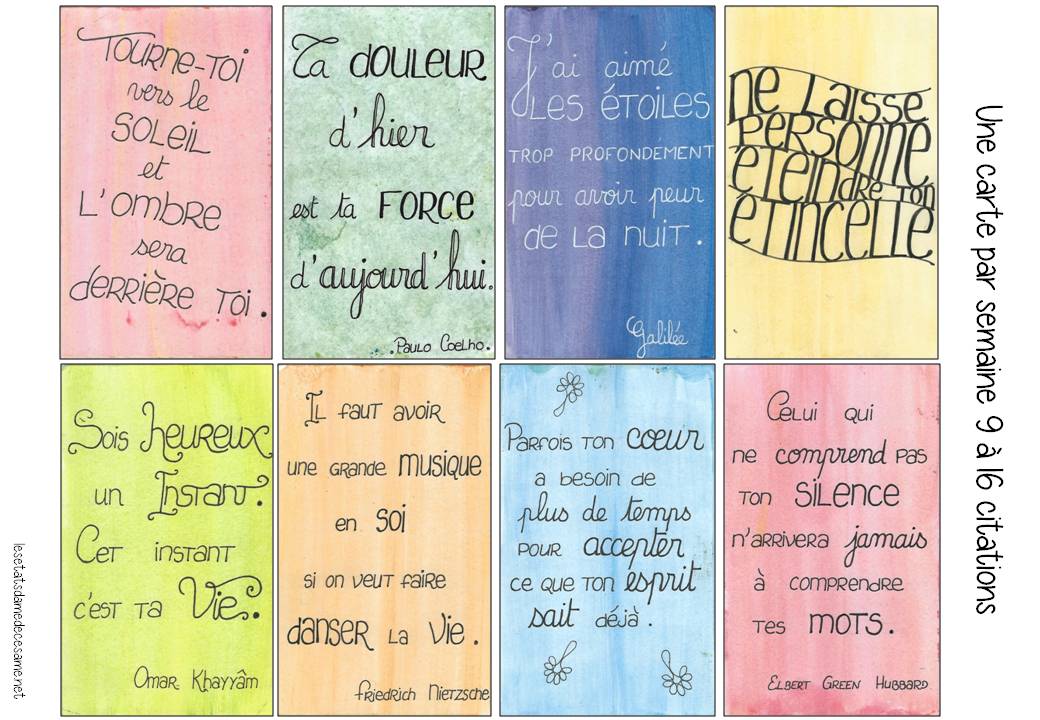 Tourne-toi
vers le
soleil
et
l'ombre
sera
derrière toi.
Ta douleur
d'hier
est ta force
d'aujourd'hui.
.Paulo Coelho.
J'ai aimé
les étoiles
trop profondément
pour avoir peur
de la nuit.
Galilée
ne laisse
personne
éteindre ton
étincelle
Sois heureux
un instant.
Cet instant
c'est ta vie.
Omar Khayyâm
Il faut avoir
une grande musique
en soi
si on veut faire
danser la vie.
Friedrich Nietzsche
Parfois ton coeur
a besoin de
plus de temps
pour accepter
ce que ton esprit
sait déjà.
Celui qui
ne comprend pas
ton silence
n'arrivera jamais
à comprendre
tes mots.
Elbert Green Hubbard
Une carte par semaine 9 à 16 citations
lesetatsdamedecesame.net